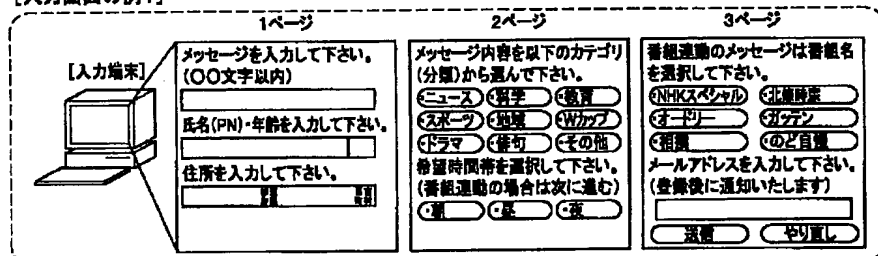 1ページ
2ページ
3ページ
[入力端末]
メッセージを入力して下さい。
(〇〇文字以内)
氏名(PN)・年齢を入力して下さい。
住所を入力して下さい。
メッセージ内容を以下のカテゴリ
(分類)から選んで下さい。
・ニュース ・科学 ・教育
・スポーツ ・地域 ・Wカップ
・ドラマ ・俳句 ・その他
希望時間帯を選択して下さい。
(番組連動の場合は次に進む)
・朝 ・昼 ・夜
番組連動のメッセージは番組名
を選択して下さい。
・NHKスペシャル ・北條時宗
・オードリー ・ガッテン
・相撲 ・のど自慢
メールアドレスを入力して下さい。
(登録後に通知いたします)
送信 やり直し